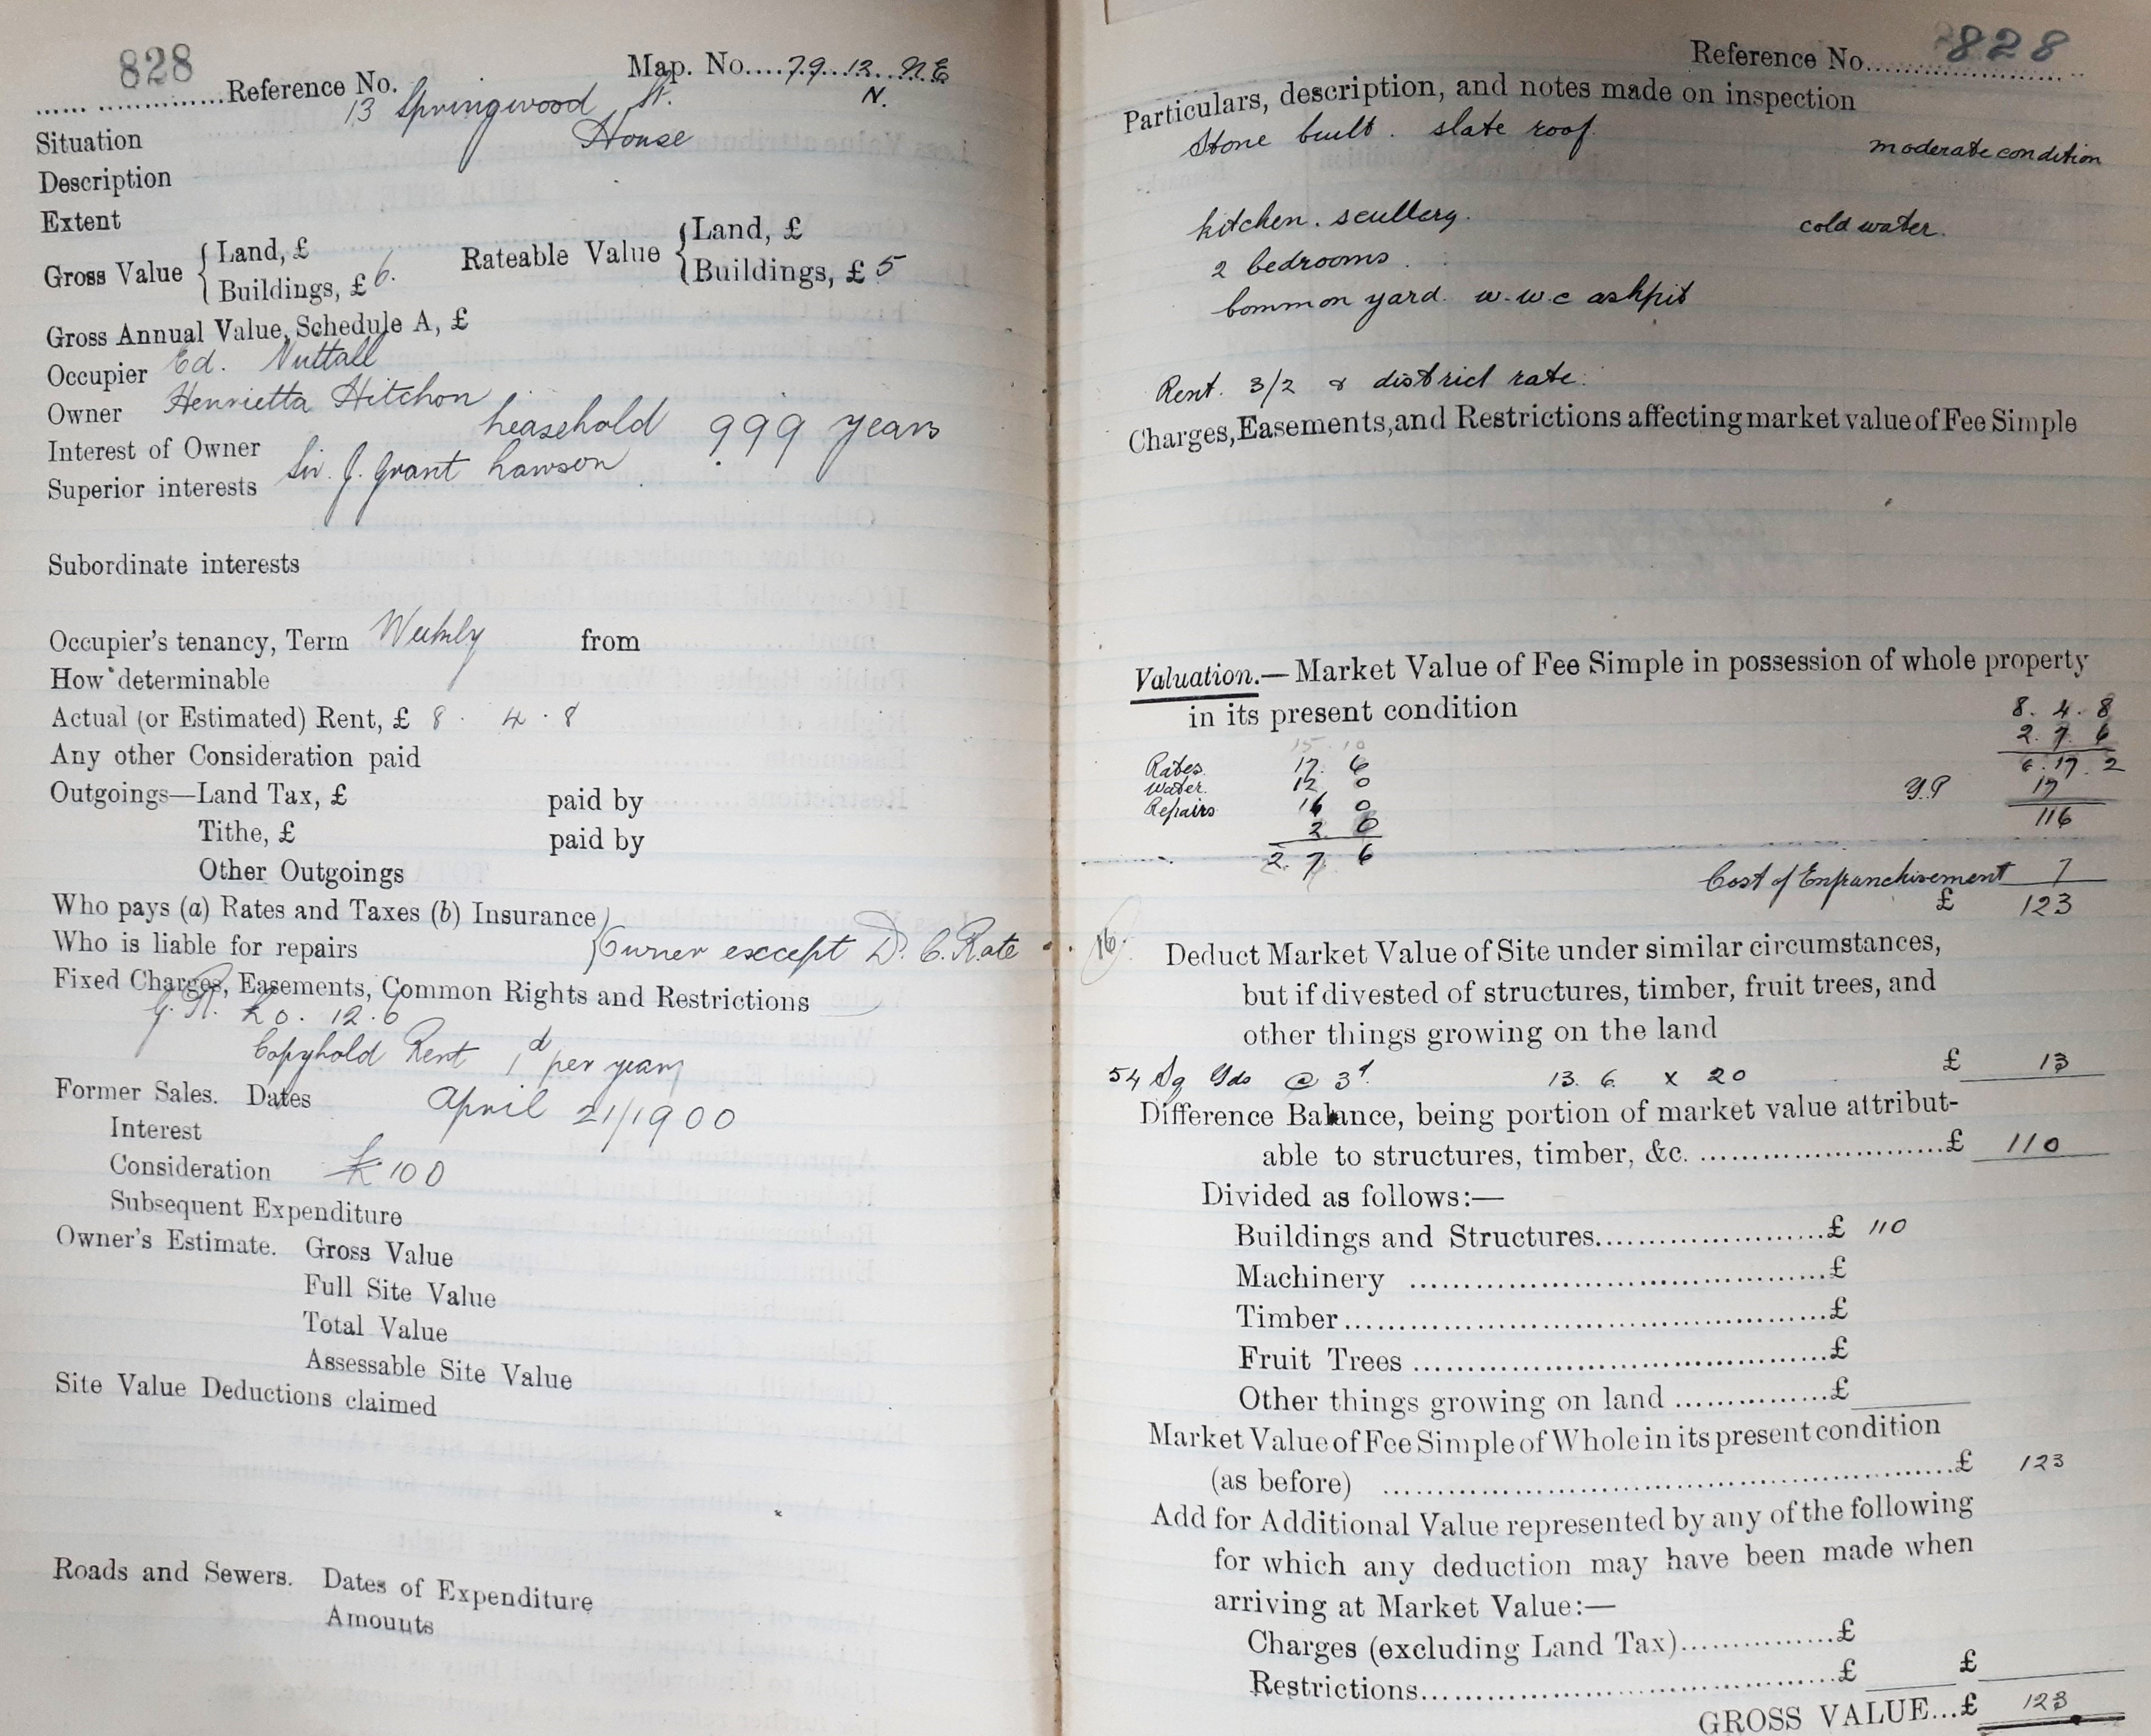 828
Reference No. Map. No. 79. 13. N.E
13 Springwood St. N.
Situation
House
Description
Extent
Gross Value { Land, £ Rateable Value { Land, £
Buildings, £ 6. Buildings, £ 5
Gross Annual Value, Schedule A, £
Occupier Ed. Nuttall
Owner Henrietta Hitchon
Interest of Owner Leasehold 999 years
Superior interests Sir. J. Grant Lawson
Subordinate interests
Occupier's tenancy, Term Weekly from
How determinable
Actual (or Estimated) Rent, £ 8. 4. 8
Any other Consideration paid
Outgoings—Land Tax, £ paid by
Tithe, £ paid by
Other Outgoings
Who pays (a) Rates and Taxes (b) Insurance }
Who is liable for repairs } Owner except D. C. Rate
Fixed Charges, Easements, Common Rights and Restrictions
G. R. £0. 12. 6
Copyhold Rent 1d per year
Former Sales. Dates April 21/1900
Interest
Consideration £100
Subsequent Expenditure
Owner's Estimate. Gross Value
Full Site Value
Total Value
Assessable Site Value
Site Value Deductions claimed
Roads and Sewers. Dates of Expenditure
Amounts
Reference No. 828
Particulars, description, and notes made on inspection
Stone built. slate roof. moderate condition
kitchen. scullery. cold water.
2 bedrooms.
Common yard. w.w.c ashpit
Rent. 3/2 & district rate.
Charges, Easements, and Restrictions affecting market value of Fee Simple
Valuation.—Market Value of Fee Simple in possession of whole property
in its present condition 8. 4. 8
15. 10 2. 7. 6
Rates 17. 6 17. 2
Water. 12 0 Y.P 17
Repairs 16 0 116
2 0
2. 7. 6
Cost of Enfranchisement 7
£ 123
16. Deduct Market Value of Site under similar circumstances,
but if divested of structures, timber, fruit trees, and
other things growing on the land
54 Sq Yds @ 3d. 13. 6. x 20 £ 13
Difference Balance, being portion of market value attribut-
able to structures, timber, &c. £ 110
Divided as follows:—
Buildings and Structures £ 110
Machinery £
Timber £
Fruit Trees £
Other things growing on land £
Market Value of Fee Simple of Whole in its present condition
(as before) £ 123
Add for Additional Value represented by any of the following
for which any deduction may have been made when
arriving at Market Value:—
Charges (excluding Land Tax) £
Restrictions £ £
GROSS VALUE...£ 123